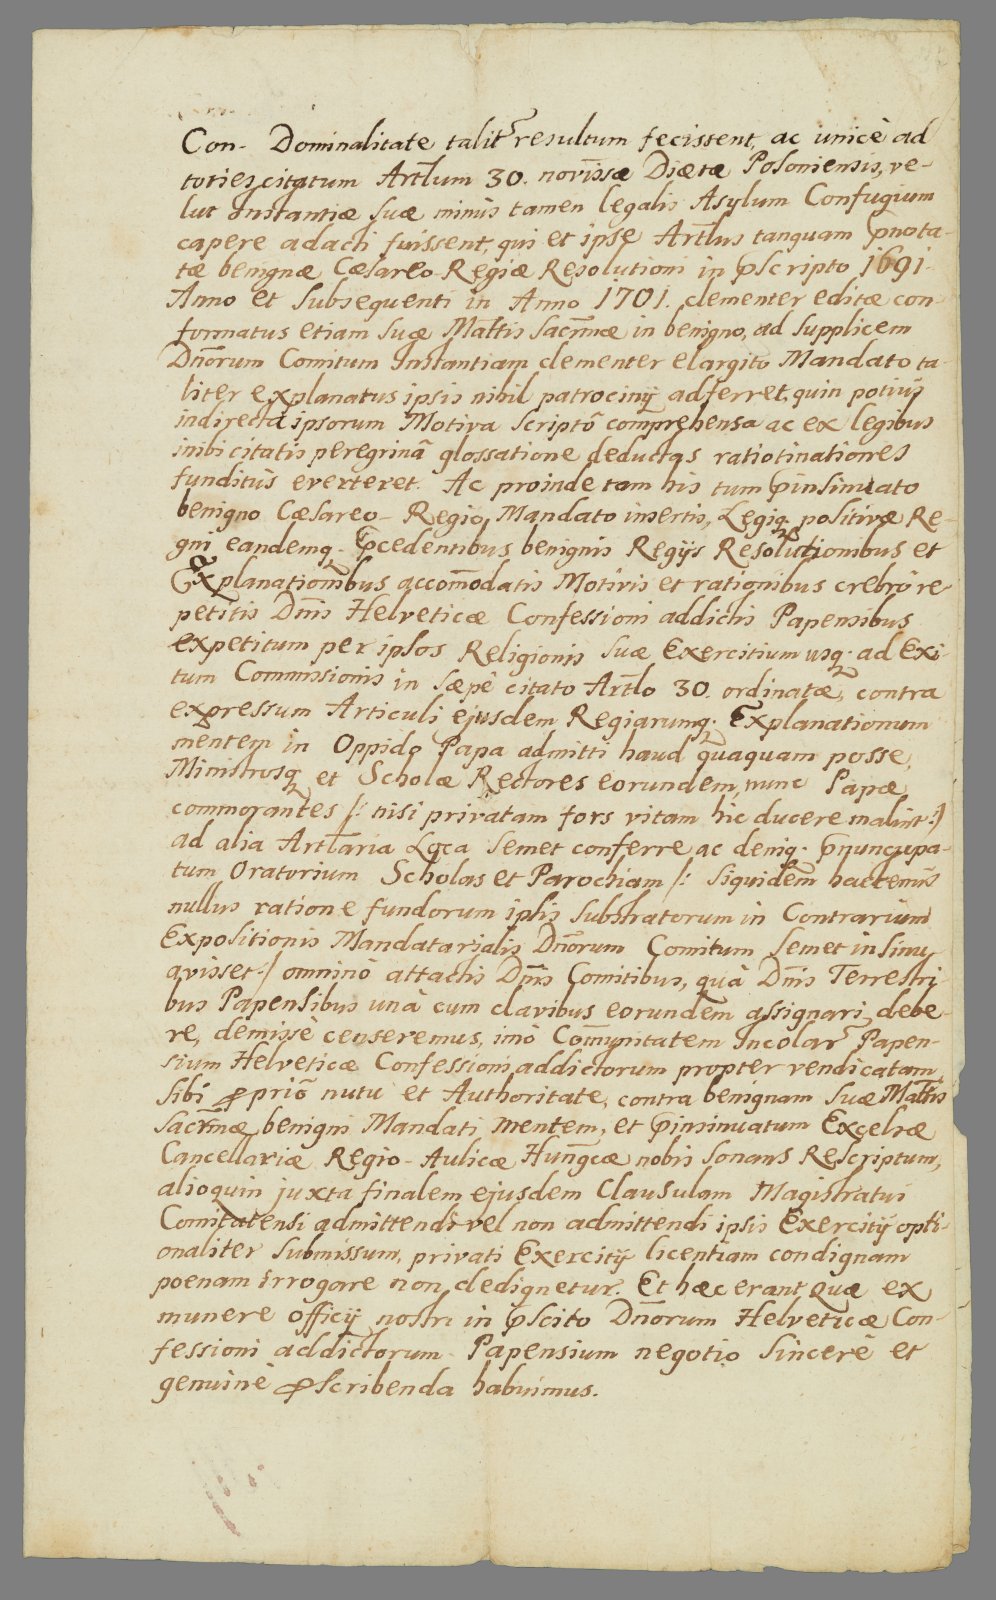 Con- Dominalitate talitr resultum fecissent, ac unicè ad
toties citatum Artlum 30. novissæ Diætæ Posoniensis, ve-
lut Instantiæ suæ minùs tamen legalis Asylum Confugium
capere adacti fuissent, qui et ipse Artlus tanquam pnota-
tæ benignæ Cæsareo-Regiæ Resolutioni in pscripto 1691.
Anno et subsequenti in Anno 1701. clementer editæ con-
formatus etiam suæ Mattis Sacrmæ in benigno, ad supplicem
Dnorum Comitum Instantiam clementer elargito Mandato ta-
liter explanatus ipsis nihil patrocinÿ adferret, quin potius
indirecta ipsorum Motiva scripto comprehensa ac ex legibus
inibi citatis peregrinâ glossatione deductas ratiotinationes
funditùs everteret. Ac proinde tam his tum pinsinuato
benigno Cæsareo-Regio Mandato insertis, Legiq. positivæ Re-
gni eandemq. pcedentibus benignis Regÿs Resolutionibus et
Explanationibus accomodatis Motivis et rationibus crebro re
petitis Dnis Helveticæ Confessioni addictis Papensibus
expetitum per ipsos Religionis suæ Exercitium usq. ad Exi-
tum Commissionis in sæpè citato Artlo 30. ordinatæ, contra
expressum Articuli ejusdem Regiarumq. Explanationum
mentem in Oppido Papa admitti haud quaquam posse,
Ministrosq et Scholæ Rectores eorundem, nunc Papæ
commorantes /: nisi privatam fors vitam hic ducere malint :/
ad alia Artlaria Loca semet conferre ac deniq. pnuncupa-
tum Oratorium Scholas et Parochiam /: siquidem hactenùs
nullus ratione fundorum ipsis substratorum in Contrarium
Expositionis Mandatarialis Dnorum Comitum semet insinu
avisset :/ omninò attactis Dnis Comitibus, quà Dnis Terrestri
bus Papensibus unà cum clavibus eorundem assignari debe-
re, demissè censeremus, imò Comunitatem Incolar Papen-
sium Helveticæ Confessioni addictorum propter vendicatam
sibi proprio nutu et Authoritate, contra benignam suæ Mattis
Sacrmæ benigni Mandati mentem, et pinsinuatum Excelsæ
Cancellariæ Regio-Aulicæ Hungcæ nobis sonans Rescriptum,
alioquin juxta finalem ejusdem Clausulam Magistratui
Comitatensi admittendi vel non admittendi ipsis Exercitÿ opti-
onaliter submissum, privati Exercitÿ licentiam condignam
poenam irrogare non dedignetur. Et hæc erant quæ ex
munere officÿ nostri in pscito Dnorum Helveticæ Con-
fessioni addictorum Papensium negotio sincerè et
genuinè pscribenda habuimus.